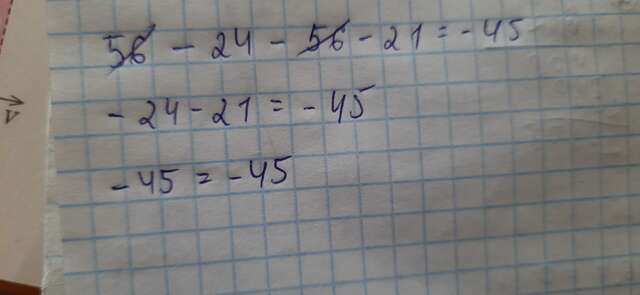 56 - 24 - 56 - 21 = -45
-24 - 21 = -45
-45 = -45